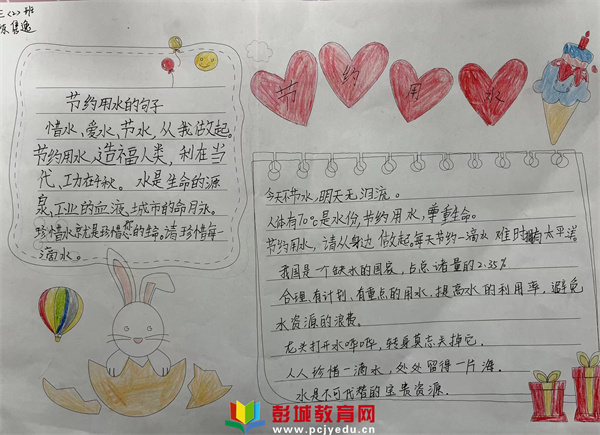 三（2）班
节约用水
节约用水的句子
惜水、爱水、节水，从我做起。
节约用水，造福人类，利在当
代，功在千秋。水是生命的源
泉、工业的血液、城市的命月永。
珍惜水就是珍惜您的生命。请珍惜每一
滴水。
今天不节水，明天无泪流。
人体有70%是水份，节约用水，尊重生命。
节约用水，请从身边做起，每天节约一滴水 难时拥太平洋
我国是一个缺水的国家，占总诸量的2.35%
合理有计划，有重点的用水，提高水的利用率，避免
水资源的浪费。
龙头打开水哗哗，转身莫忘关掉它。
人人珍惜一滴水，处处留得一片海。
水是不可代替的宝贵资源.
彭城教育网
www.pcjyedu.cn